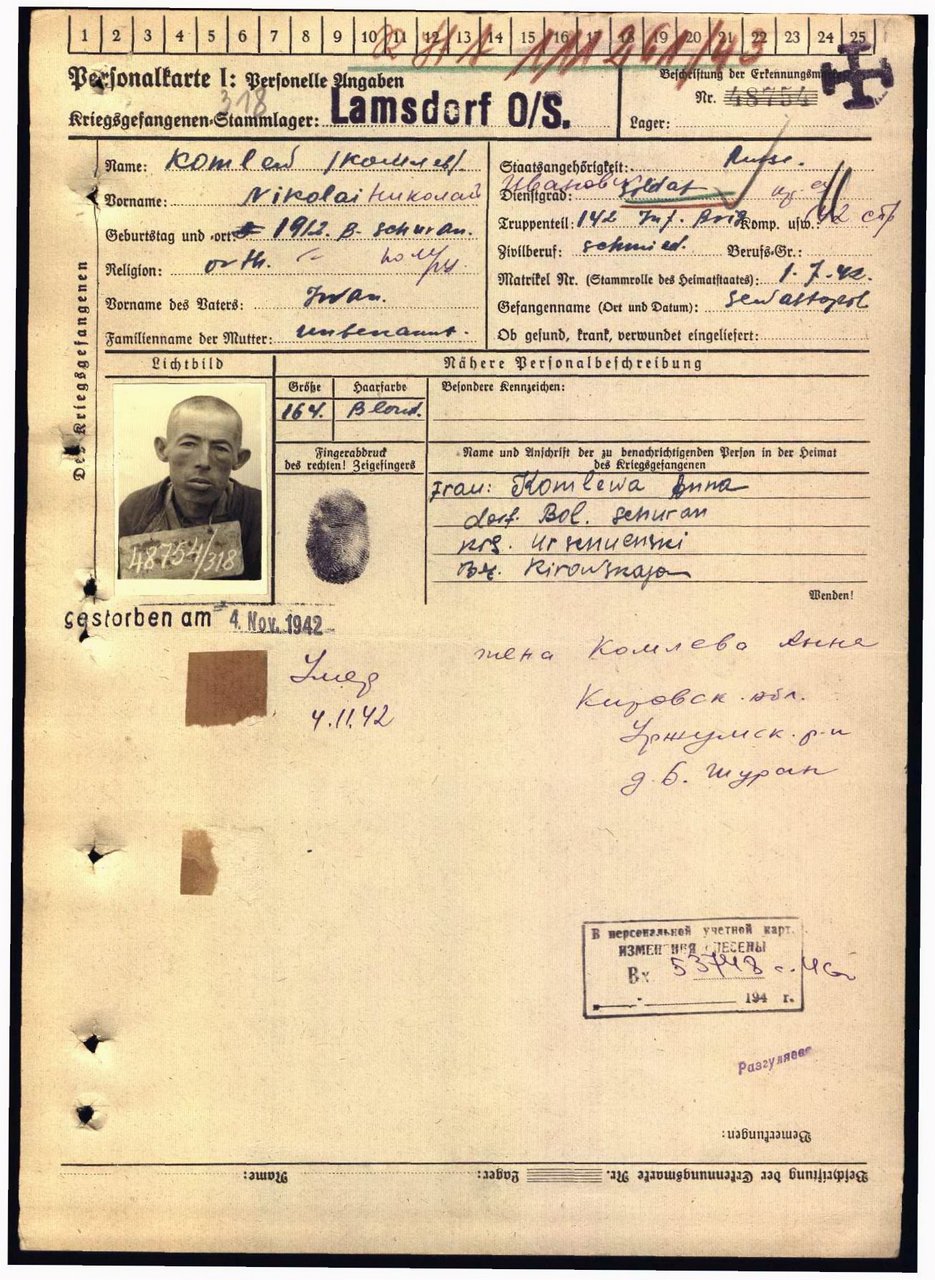 1 2 3 4 5 6 7 8 9 10 11 12 13 14 15 16 17 18 19 20 21 22 23 24 25
Personalkarte I: Personelle Angaben
Kriegsgefangenen-Stammlager: 318 Lamsdorf O/S.
Beschriftung der Erkennungsmarke
Nr. 48754
Lager:
Des Kriegsgefangenen
Name: Komlew /Комлев/
Vorname: Nikolai Николай
Geburtstag und -ort: 1912. B. Schuran.
Religion: orth.
Vorname des Vaters: Iwan.
Familienname der Mutter: unbenannt.
Staatsangehörigkeit: Russe.
Иванович
Dienstgrad: Soldat
Truppenteil: 142 Inf. Brig Komp. usw.: 142 стр
Zivilberuf: Schmied. Berufs-Gr.:
Matrikel Nr. (Stammrolle des Heimatstaates): 1.7.42.
Gefangenname (Ort und Datum): Sewastopol
Ob gesund, krank, verwundet eingeliefert:
Lichtbild
Nähere Personalbeschreibung
Größe Haarfarbe Besondere Kennzeichen:
164. Blond.
Fingerabdruck
des rechten! Zeigefingers
Name und Anschrift der zu benachrichtigenden Person in der Heimat
des Kriegsgefangenen
Frau: Komlewa Anna
dorf. Bol. Schuran
krs.
Bz. Kirowskaja
Wenden!
48754/318
gestorben am 4. Nov. 1942
Умер
4.11.42
жена Комлева Анна
Кировск. обл.
Уржумск. р-н
д. Б. Шуран
В персональной учетной карт.
ИЗМЕНЕНИЯ ВНЕСЕНЫ
Вх 53748
194 г.
Разгуляев
Bemerkungen:
Beschriftung der Erkennungsmarke Nr. Lager: Name: